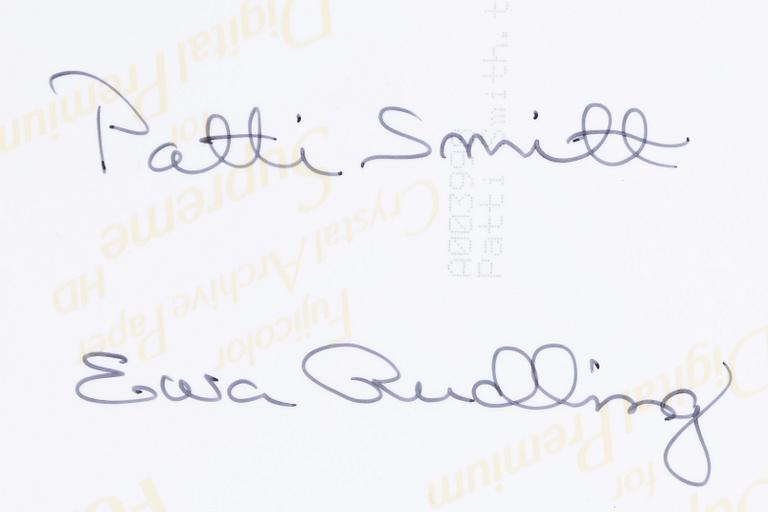 Patti Smith
Ewa Rudling
A003998
Patti Smith, t
Digital Premium
for
Supreme
HD
Crystal Archive Paper
Fujicolor
Digital Premium
for